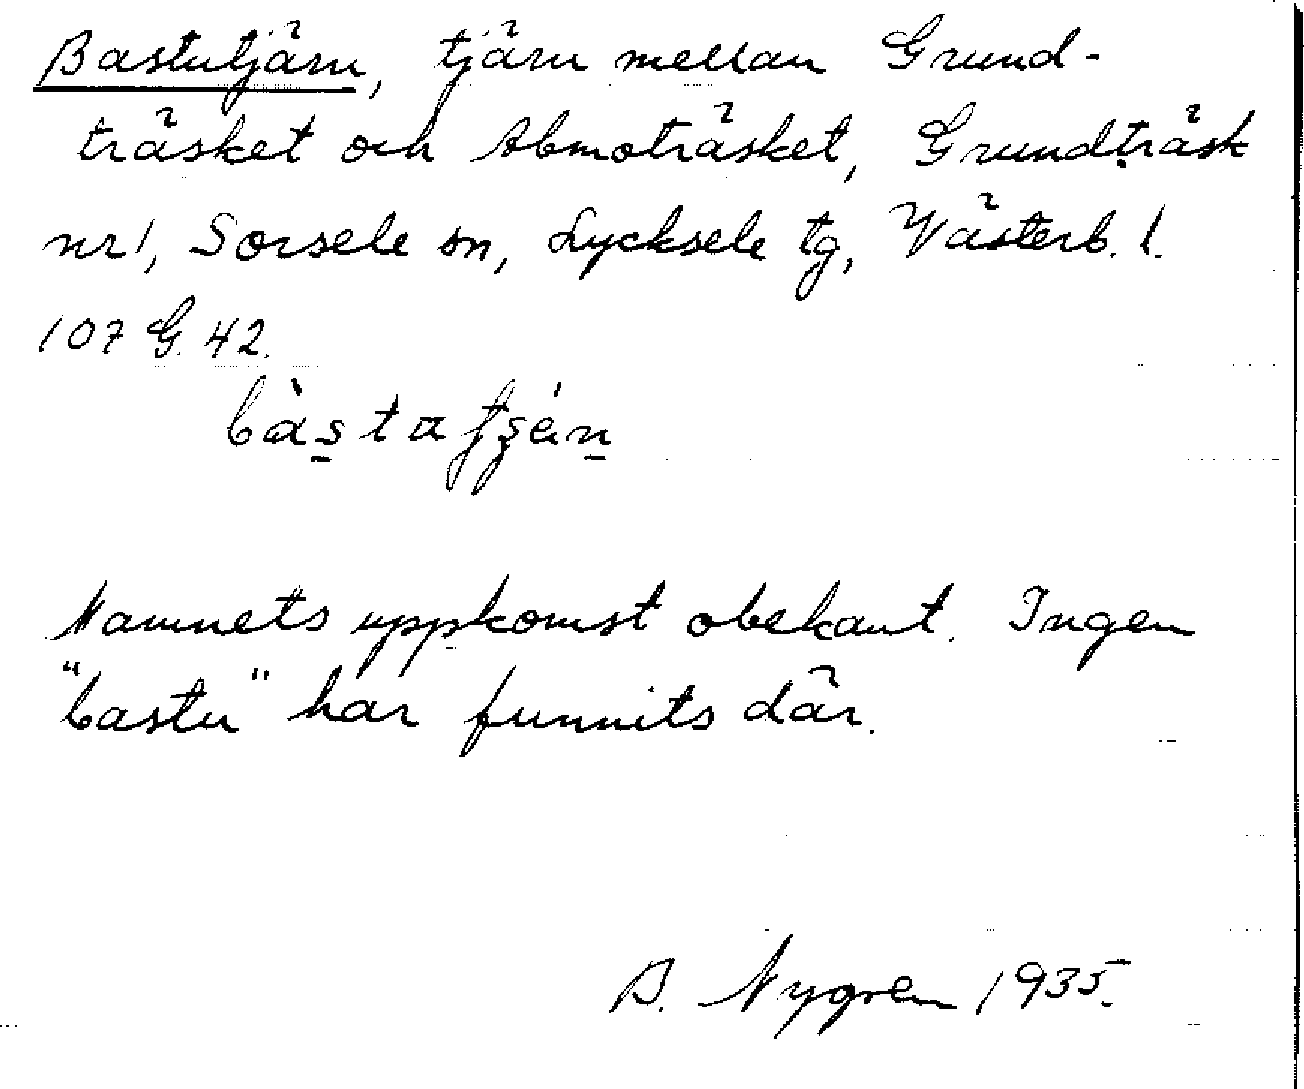 Bastutjärn, tjärn mellan Grund-
träsket och Abmoträsket, Grundträsk
nr 1, Sorsele sn, Lycksele tg, Västerb. l.
107 G. 42.
Namnets uppkomst obekant. Ingen
"bastu" har funnits där.
B. Nygren 1935.